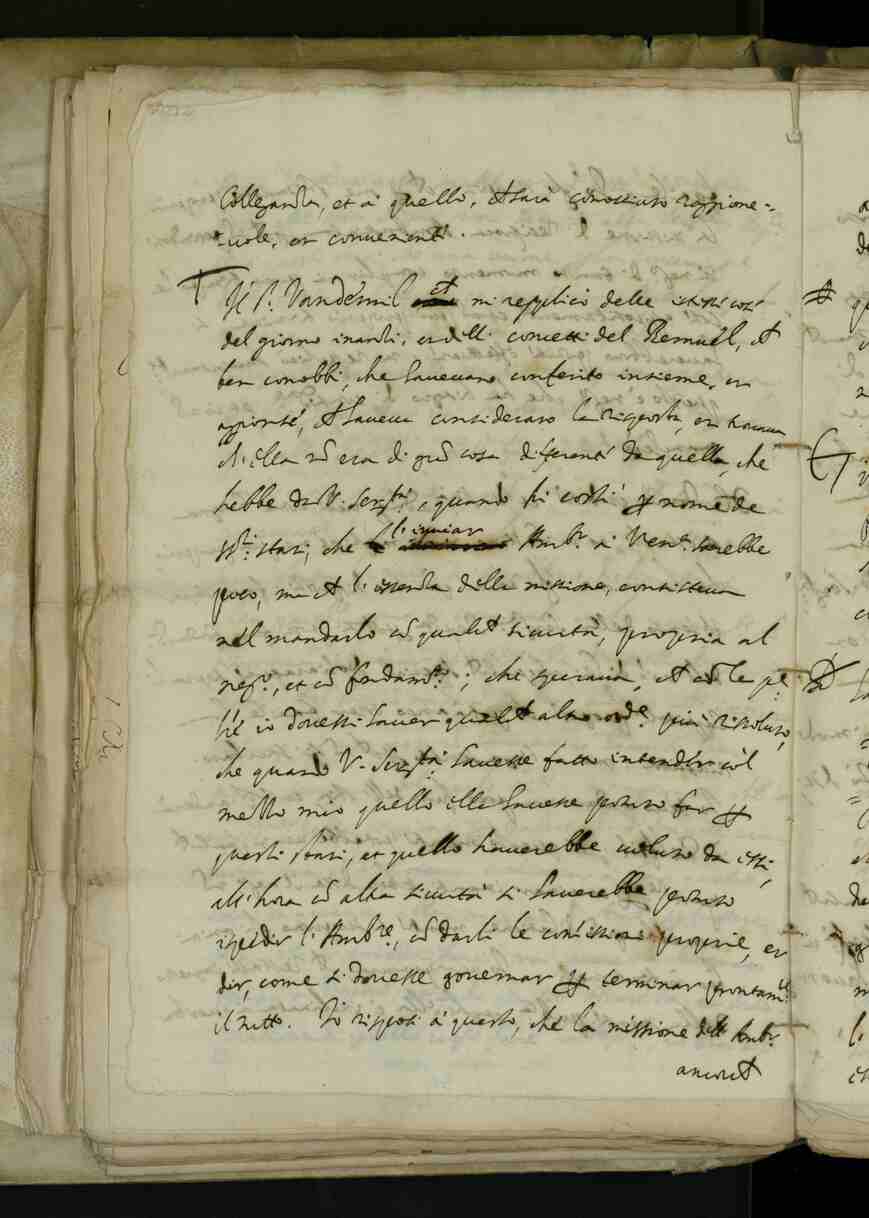 Colleganda, et à quello, che sarà conosciuto raggione=
=uole, et conueniente.
Il Sr. Vandermil mi replicò delle istesse cose
del giorno inanti, et delli concetti del Bernuel, et
ben conobbi, che haueuano conferito insieme, et
appostaté, che haueua considerato la risposta, et trouaua
ch'ella nõ era di grã cosa differente da quella, che
hebbe da V. Sertà, quando fu costi ꝑ nome de
SSri. Stati, che l'inuiar Ambr. à Vena. sarebbe
poco, ma che l'essentia della missione, consisteua
nel mandarlo cõ qualche sicurtà, propria al
nego., et cõ fondamto.; che speraua, che cõ le pe.
h'è io douessi hauer qualche altro orde. più rissoluto,
che quando V. Sertà hauesse fatto intender col
mezzo mio quello ella hauesse potuto far ꝑ
questi Stati, et quello hauerebbe uoluto da essi,
all'hora cõ altra sicurtà si hauerebbe potuto
ispedir l'Ambre., cõ darli le comissioni proprie, et
dir, come si douesse gouernar ꝑ terminar prontamte.
il tutto. Io risposi à questo, che la missione dell'Ambr.
ancorche